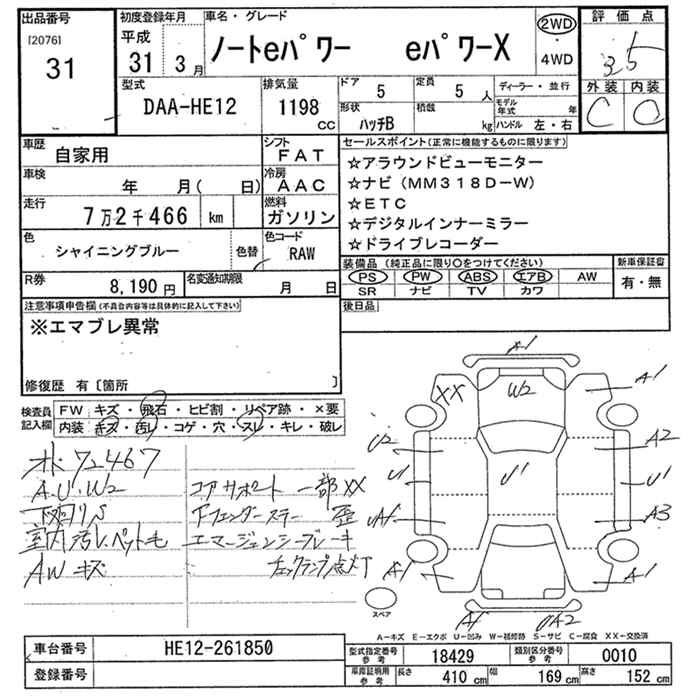 出品番号 初度登録年月 車名・グレード 2WD 評価点
[2076] 平成
31 31 3月 ノートeパワー eパワーX ・ 3.5
4WD
型式 排気量 ドア 5 定員 5人 ディーラー・並行 外装 内装
DAA-HE12 1198 cc 形状 ハッチB 積載 kg モデル年式 年 C C
ハンドル 左・右
車歴 自家用 シフト FAT セールスポイント(正常に機能するものに限ります)
車検 年 月( 日) 冷房 AAC ☆アラウンドビューモニター
☆ナビ(MM318D-W)
走行 7万2千466 km 燃料 ガソリン ☆ETC
☆デジタルインナーミラー
色 シャイニングブルー 色替 色コード RAW ☆ドライブレコーダー
装備品(純正品に限り○をつけてください) 新車保証書
R券 8,190円 名変通知期限 月 日 PS PW ABS エアB AW 有・無
SR ナビ TV カワ
注意事項申告欄(不具合内容等は具体的に記入して下さい) 後日品
※エマブレ異常
修復歴 有〔箇所 〕
検査員記入欄 FW キズ・飛石・ヒビ割・リペア跡・×要
内装 キズ・汚レ・コゲ・穴・スレ・キレ・破レ
A1
XX W2 A1
U2 A2
U1 U1 U1
A3
A1 A1
A1 A2
72467
A.U.W2 コアサポート一部XX
下回りS 歪
室内汚レ、ペット毛 エマージェンシーブレーキ
AWキズ チェックランプ点灯
スペア
A―キズ E―エクボ U―凹み W―補修跡 S―サビ C―腐食 XX―交換済
車台番号 HE12-261850 型式指定番号参考 18429 類別区分番号参考 0010
登録番号 車庫証明用参考 長さ 410 cm 幅 169 cm 高さ 152 cm